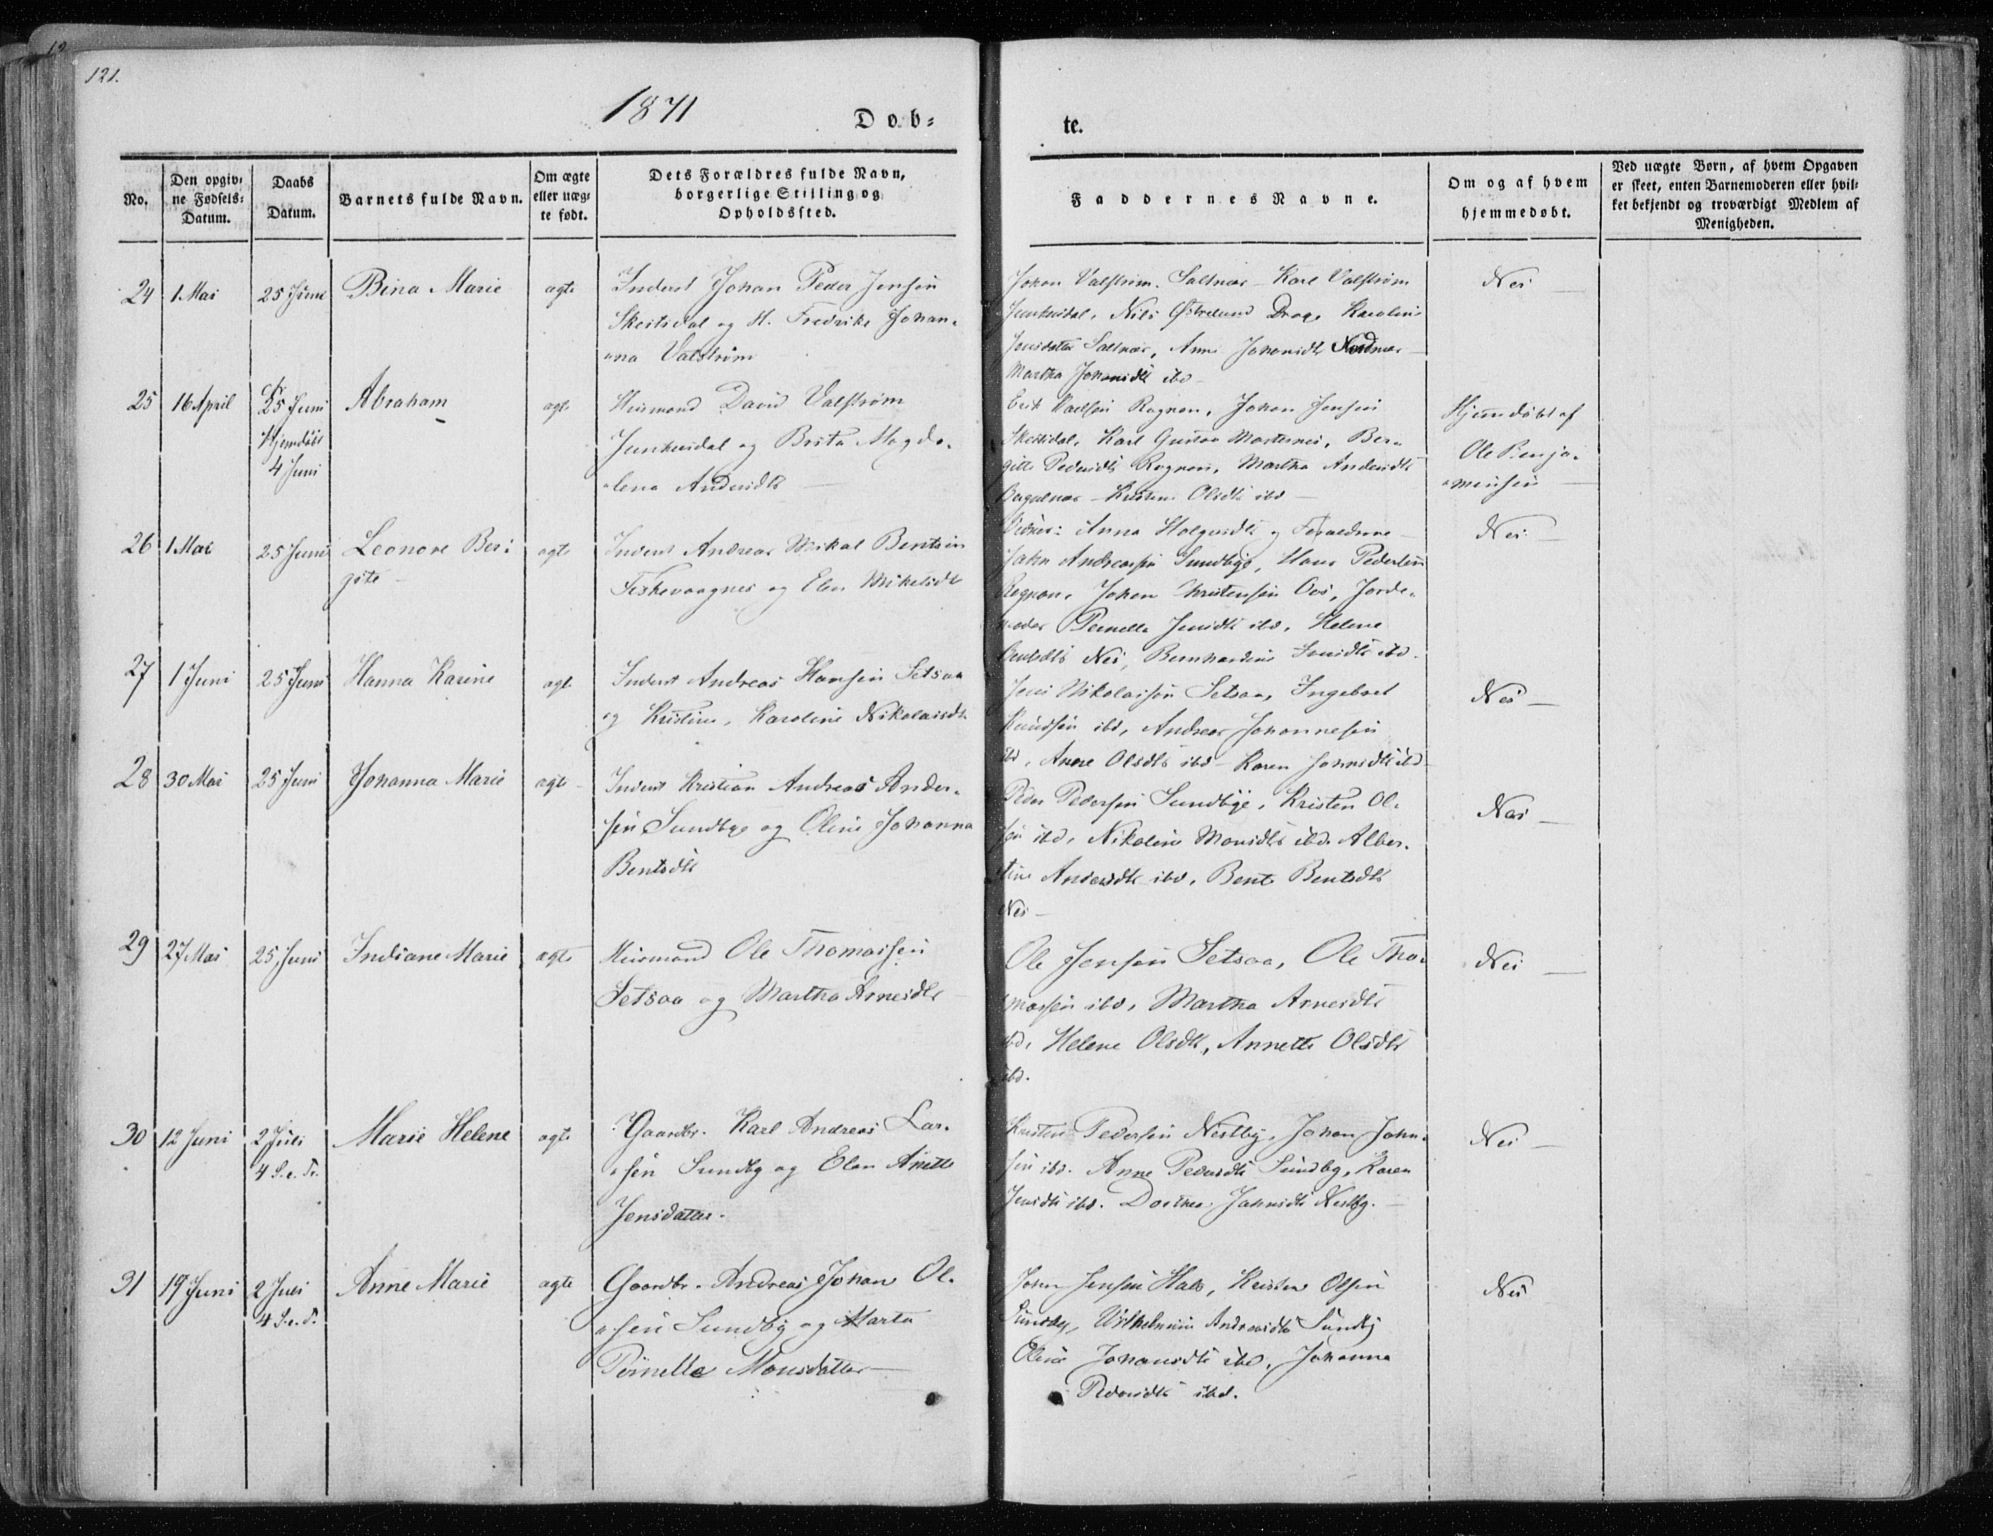 121.
1871
Døb-
te.
No.
Den opgiv-
ne Fødsels-
Datum.
Daabs
Datum.
Barnets fulde Navn.
Om ægte
eller uæg-
te født.
Dets Forældres fulde Navn,
borgerlige Stilling og
Opholdssted.
Faddernes Navne.
Om og af hvem
hjemmedøbt.
Ved uægte Børn, af hvem Opgaven
er skeet, enten Barnemoderen eller hvil-
ket bekjendt og troværdigt Medlem af
Menigheden.
24 1 Mai 25 Juni Bina Marie ægte
Inderst Johan Peder Jensen
Skeitsdal og H. Fredrike Johan-
na Valstrøm
Johan Valstrøm Saltnæs - Karl Valstrøm
Junkersdal, Nils Østrelund Karoline
Jensdatter Saltnæs, Anne Johansdtr
Martha Johansdtr ibd
Nei
25 16 April 25 Juni
Hjemdøbt
4 Juni
Abraham ægte
Huusmand David Valstrøm
Junkersdal og Brita Magda-
lena Andersdtr
Erik Rognan, Johan Jensen
Skeitsdal, Karl Gustav Ber-
gitte Pedersdtr Rognan, Martha Andersdtr
Olsdtr ibd
Hjemdøbt af
Ole Benja-
mensen
26 1 Mai 25 Juni Leonore Ber-
gite
ægte
Inderst Andreas Mikal Bentsen
Fiskevaagnes og Elen Mikelsdtr
Anna Holgersdtr og Forældrene
John Andreassen Sundbye, Hans Pedersen
Rognan, Johan Christensen Jorde-
moder Pernelle Jensdtr ibd, Helene
Bentsdtr Nes, Bernhardine Jensdtr ibd.
Nei
27 1 Juni 25 Juni Hanna Karine ægt.
Inderst Andreas Hansen Setsaa
og Kristine Karoline Nikolaisdtr
Jens Nikolaisen Setsaa, Ingebret
Knudsen ibd, Andreas Johannesen
ibd, Anne Olsdtr ibd - Karen Johnsdtr ibd
Nei
28 30 Mai 25 Juni Johanna Marie ægt
Inderst Kristian Andreas Ander-
sen Sundbye og Oline Johanna
Bentsdtr
Peder Pedersen Sundbye, Kristen Ol-
sen ibd, Nikoline Monsdtr ibd. Alber-
tine Andersdtr ibd, Bent Bentsdtr
Nes
Nei
29 27 Mai 25 Juni Indiane Marie ægte
Huusmand Ole Thomassen
Setsaa og Martha Arnesdtr
Ole Jensen Setsaa, Ole Tho-
massen ibd, Martha Arnesdtr
ibd, Helene Olsdtr, Annette Olsdtr
ibd.
Nei
30 12 Juni 2 Juli
4 S. e. Tr.
Marie Helene ægte
Gaardbr. Karl Andreas Lar-
sen Sundby og Elen Anette
Jensdatter.
Kristen Pedersen Nestby, Johan John-
sen ibd. Anne Pedersdtr Sundby, Karen
Jensdtr ibd. Dorthea Johnsdtr Nestby.
Nei
31 19 Juni 2 Juli
4 S. e. Tr.
Anne Marie ægte
Gaardbr. Andreas Johan Ol-
sen Sundby og Marta
Pernelle Monsdatter
John Jensen Hals, Kristen Olsen
Sundby, Wilhelmine Andreasdtr Sundby
Oline Johansdtr ibd, Johanna
Pedersdtr ibd.
Nei